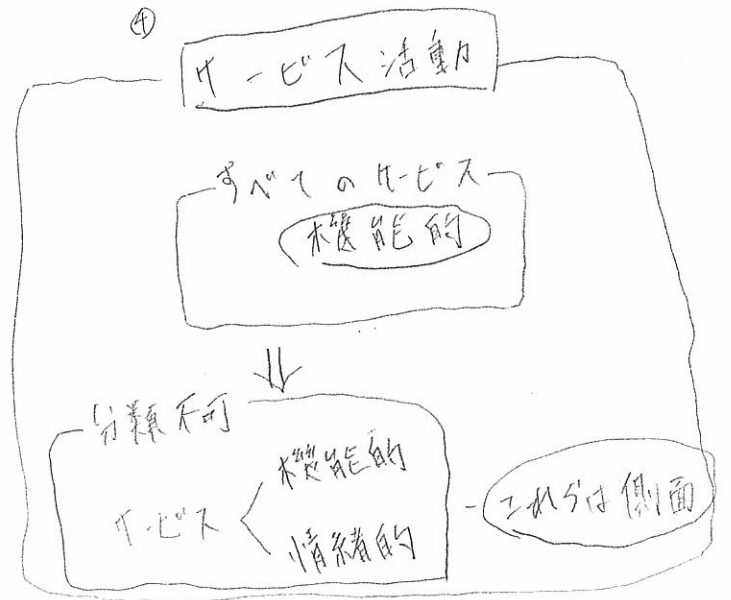 ④
サービス活動
すべてのサービス
機能的
分類不可
機能的
サービス
情緒的
これらは側面